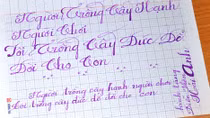 Người Trồng Cây Hạnh
Người Chơi
Tôi Trồng Cây Đức Để
Đời Cho Con
Người trồng cây hạnh người chơi
Tôi trồng cây đức để đời cho con